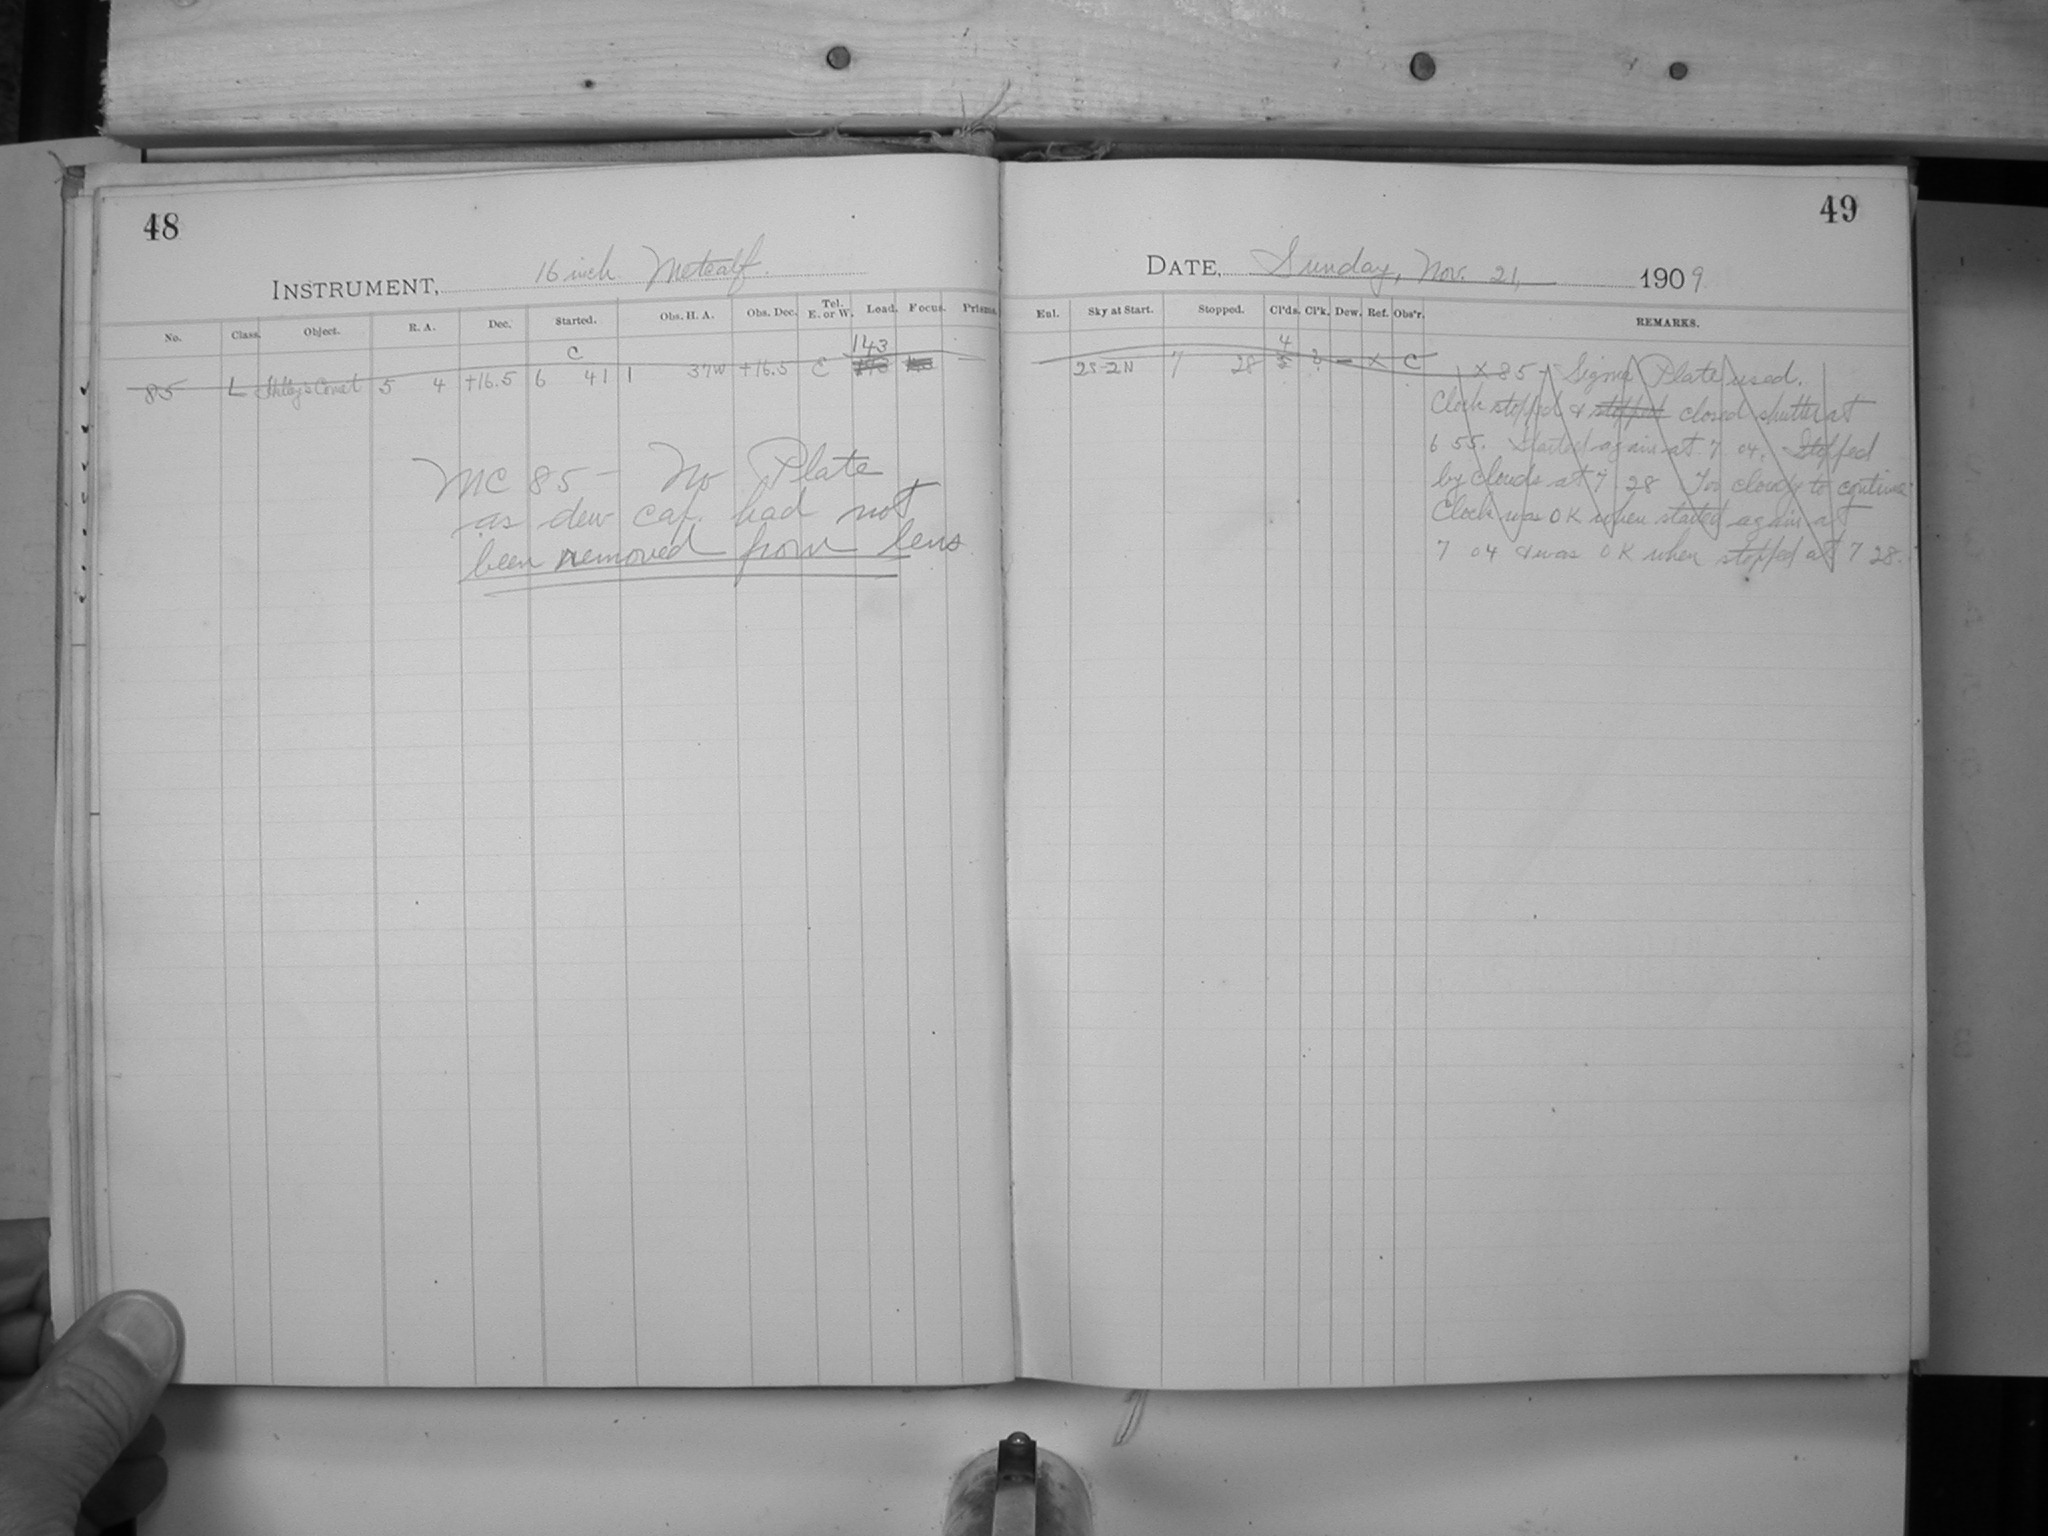 48
INSTRUMENT, 16 inch Metcalf.
No. Class. Object. R. A. Dec. Started. Obs. H. A. Obs. Dec. Tel. E. or W. Load. Focus. Prisms.
C 143
85 L Comet 5 4 +16.5 6 41 1 37W +16.5 C
MC 85 - No Plate
as dew cap had not
been removed from lens
49
DATE, Sunday, Nov. 21, 1909
Enl. Sky at Start. Stopped. Cl'ds. Cl'k. Dew. Ref. Obs'r. REMARKS.
4
2S-2N 7 28 5 2 - X C X 85 - Sigma Plate used.
Clock stopped & stopped closed shutter at
6 55. Started again at 7 04. Stopped
by clouds at 7 28 Too cloudy to continue
Clock was OK when started again at
7 04 & was OK when stopped at 7 28.